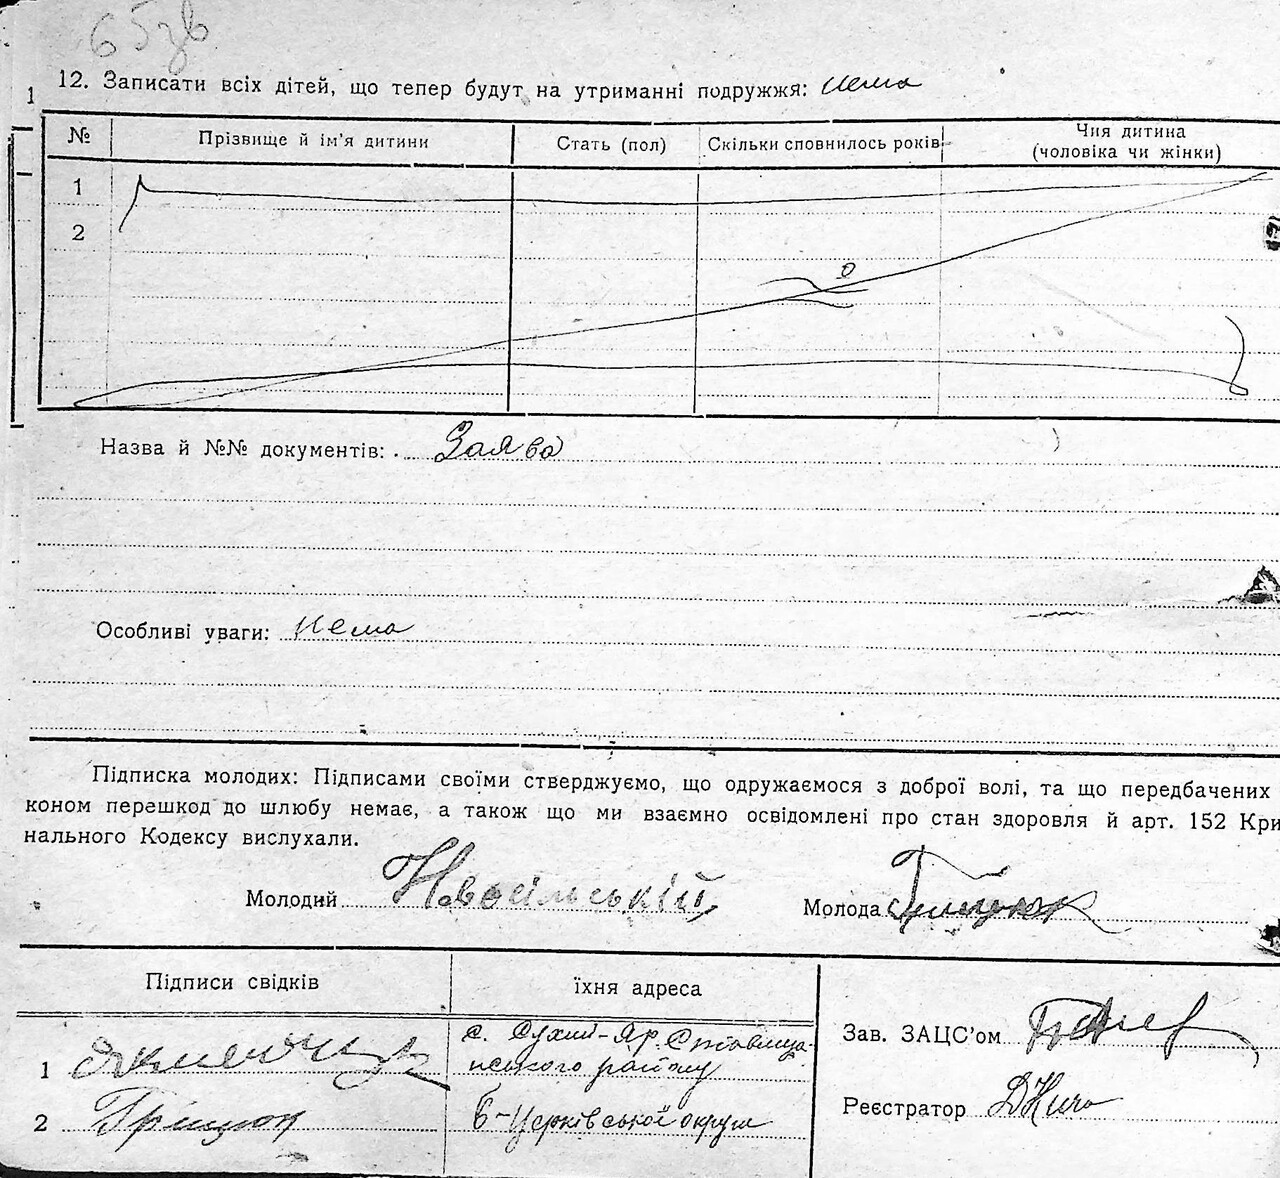 65зв
12. Записати всіх дітей, що тепер будут на утриманні подружжя: нема
1
№ Прізвище й ім'я дитини Стать (пол) Скільки сповнилось років Чия дитина (чоловіка чи жінки)
1
2
Назва й №№ документів: Заява
Особливі уваги: нема
Підписка молодих: Підписами своїми стверджуємо, що одружаємося з доброї волі, та що передбачених
коном перешкод до шлюбу немає, а також що ми взаємно освідомлені про стан здоровля й арт. 152 Кри
нального Кодексу вислухали.
Молодий Новосільський Молода Грицюк
Підписи свідків їхня адреса
Зав. ЗАЦС'ом
1 с. Сухий-Яр. Ставища-
нського району
Реєстратор
2 Грицюк Б-Церківської округи